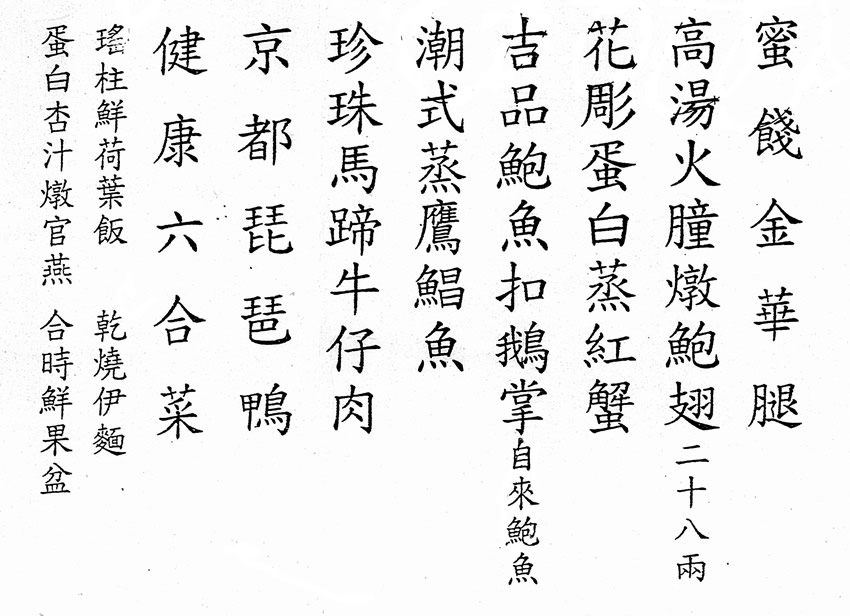 蜜餞金華腿
高湯火朣燉鮑翅二十八兩
花彫蛋白蒸紅蟹
吉品鮑魚扣鵝掌自來鮑魚
潮式蒸鷹鯧魚
珍珠馬蹄牛仔肉
京都琵琶鴨
健康六合菜
瑤柱鮮荷葉飯 乾燒伊麵
蛋白杏汁燉官燕 合時鮮果盆